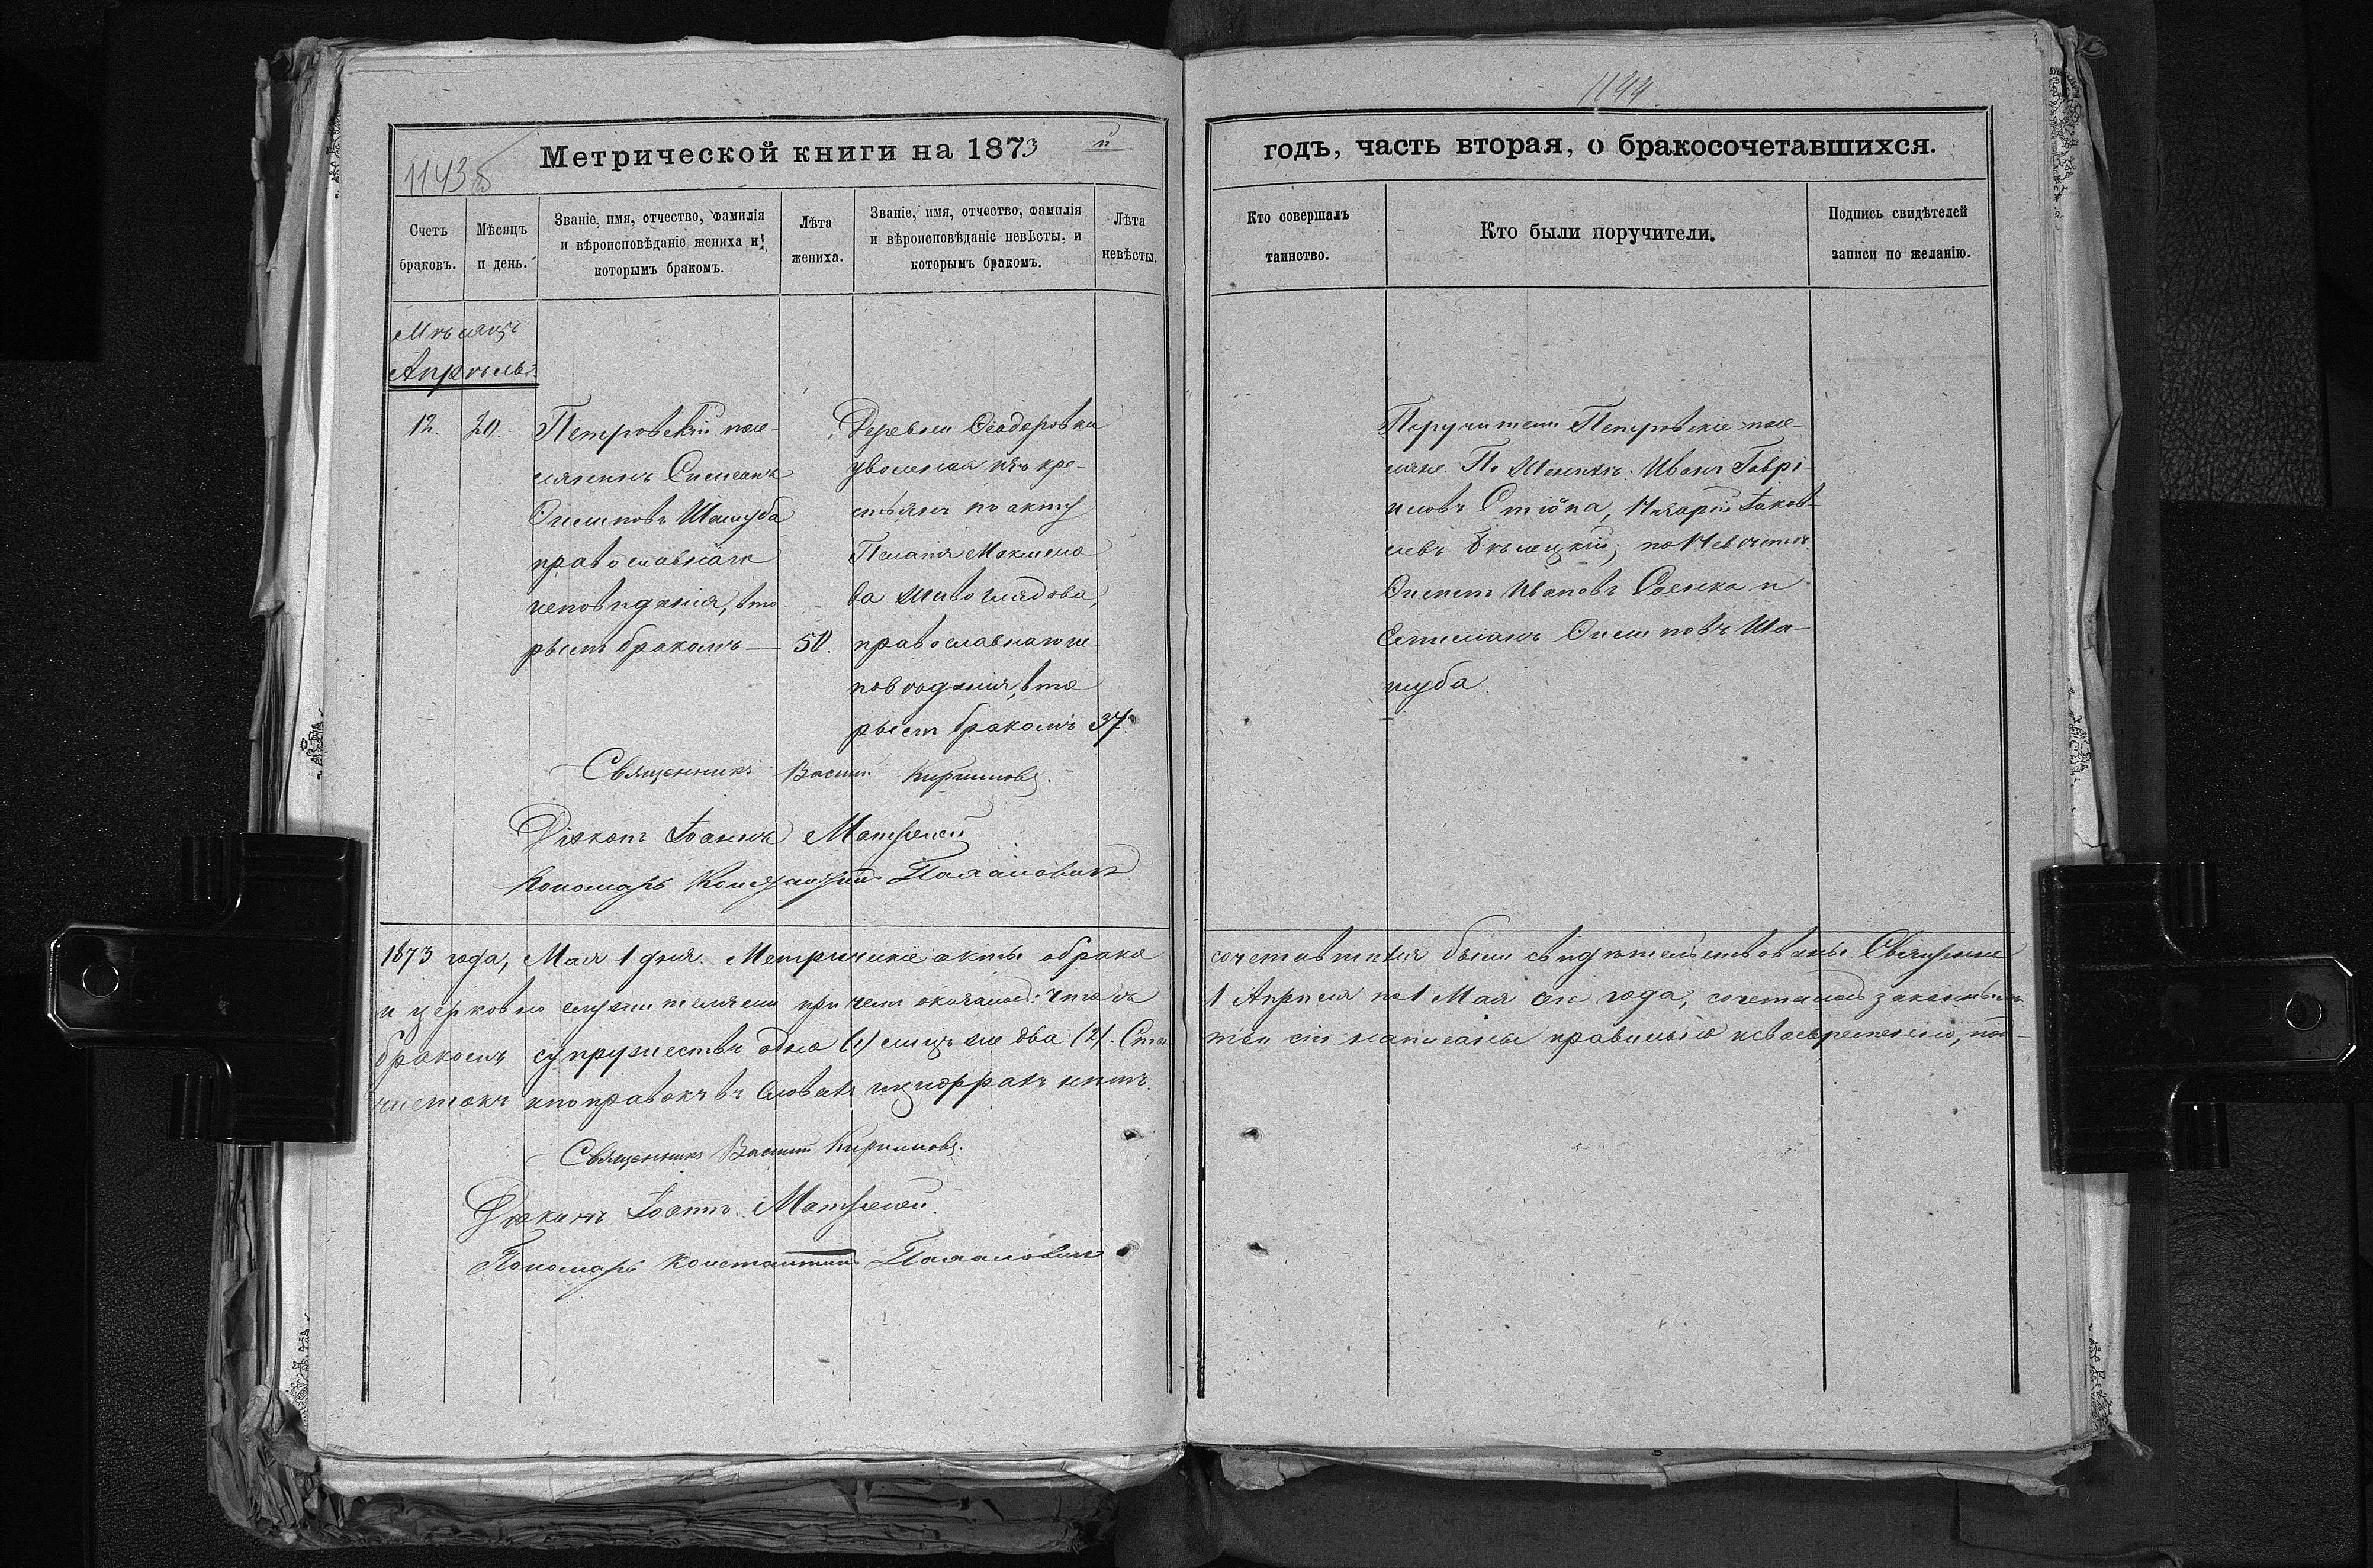 1144
Метрической книги на 1873 й
1143 б
Счетъ браковъ.
Мѣсяцъ и день.
Званіе, имя, отчество, фамилія и вѣроисповѣданіе жениха и которымъ бракомъ.
Лѣта жениха.
Званіе, имя, отчество, фамилія и вѣроисповѣданіе невѣсты, и которымъ бракомъ.
Лѣта невѣсты.
Мѣсяцъ
Апрѣль.
12. 20.
Петровскій посе-
лянинъ Симеонъ
Осиповъ Шапуба
православнаго
исповѣданія, вто
рымъ бракомъ — 50.
Деревни Ѳеодоровки
уволенная изъ кре-
стьянъ по акту
Пелагія Максимо
ва
православнаго ис
повѣданія, вто
рымъ бракомъ 37.
Священникъ Василій Кирилловъ.
Діаконъ Іоаннъ
Пономарь Константинъ
1873 года, Мая 1 дня. Метрическіе акты о брако
и церковно служителями при чемъ оказалось: что въ
бракомъ супружествъ одно (1) лицъ же два (2).
чистокъ и поправокъ въ словахъ и цифрахъ нѣтъ.
Священникъ Василій Кирилловъ.
Діаконъ Іоаннъ
Пономарь Константинъ
годъ, часть вторая, о бракосочетавшихся.
Кто совершалъ таинство.
Кто были поручители.
Подпись свидѣтелей записи по желанію.
Поручители Петровскіе посе-
ляне. По Женихѣ: Иванъ Гаврі
иловъ Назарій Іаков-
левъ по Невѣстѣ:
Осипъ Ивановъ Саенко и
Осиповъ Ша-
пуба.
сочетавшихся были свидѣтельствованы Священно
1 Апрѣля по 1 Мая сего года, сочеталось законнымъ
сіи написаны правильно и своевременно, под-